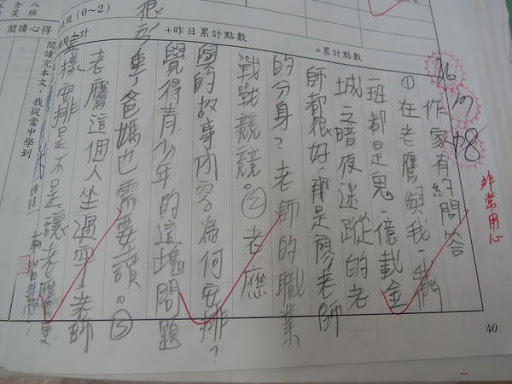 +昨日累計點數
=累計點數
(0~2)
非常用心
作家有約問答
①在老鷹與我、我們
一班都是鬼、億載金
城之暗夜迷蹤的老
師都很好,那是廖老師
的分身?老師的職業
戰戰兢兢。②老鷹
的故事內容為何安排?
覺得青少年的這塊問題
很多
重,爸媽也需要讀。③
老鷹這個人坐過牢,老師
樣安排是不是讓老鷹更
閱讀完本文,我從當中學到
閱讀心得
八班
40